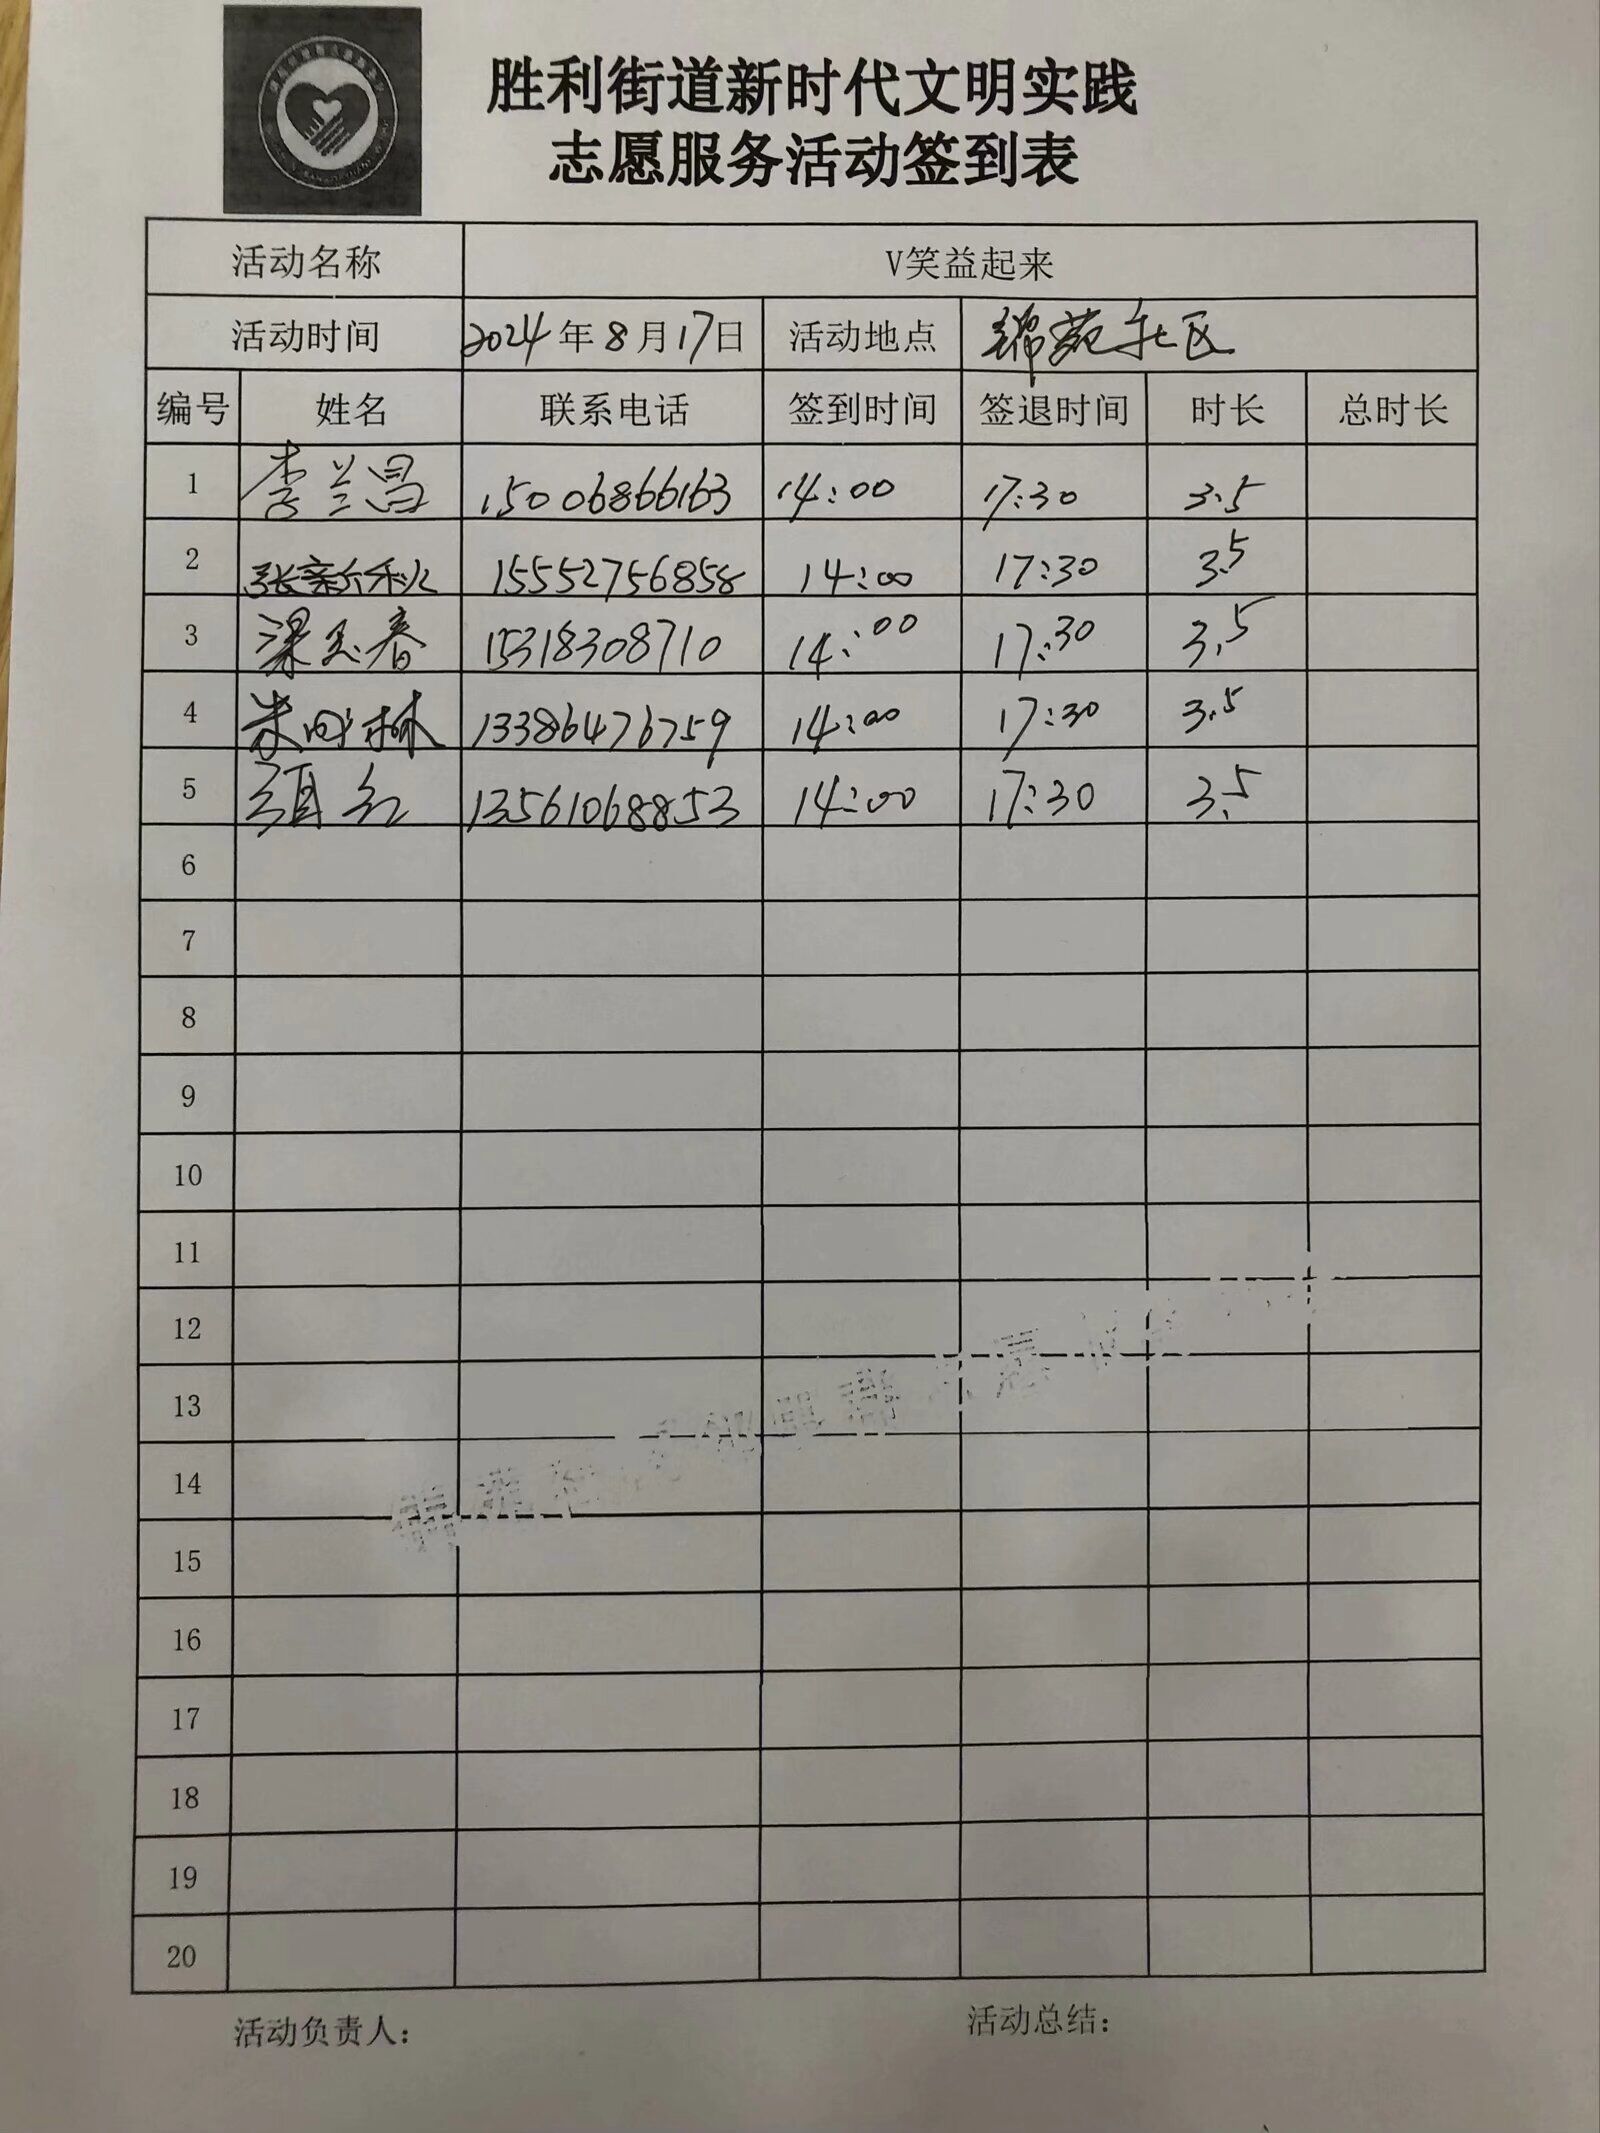 胜利街道新时代文明实践
志愿服务活动签到表
活动名称 V笑益起来
活动时间 2024年8月17日 活动地点 锦苑社区
编号 姓名 联系电话 签到时间 签退时间 时长 总时长
1 李兰昌 15006866163 14:00 17:30 3.5
2 张新秋 15552756858 14:00 17:30 3.5
3 梁玉春 15318308710 14:00 17:30 3.5
4 朱时林 13386476759 14:00 17:30 3.5
5 项红 13561068853 14:00 17:30 3.5
6
7
8
9
10
11
12
13
14
15
16
17
18
19
20
活动负责人: 活动总结: